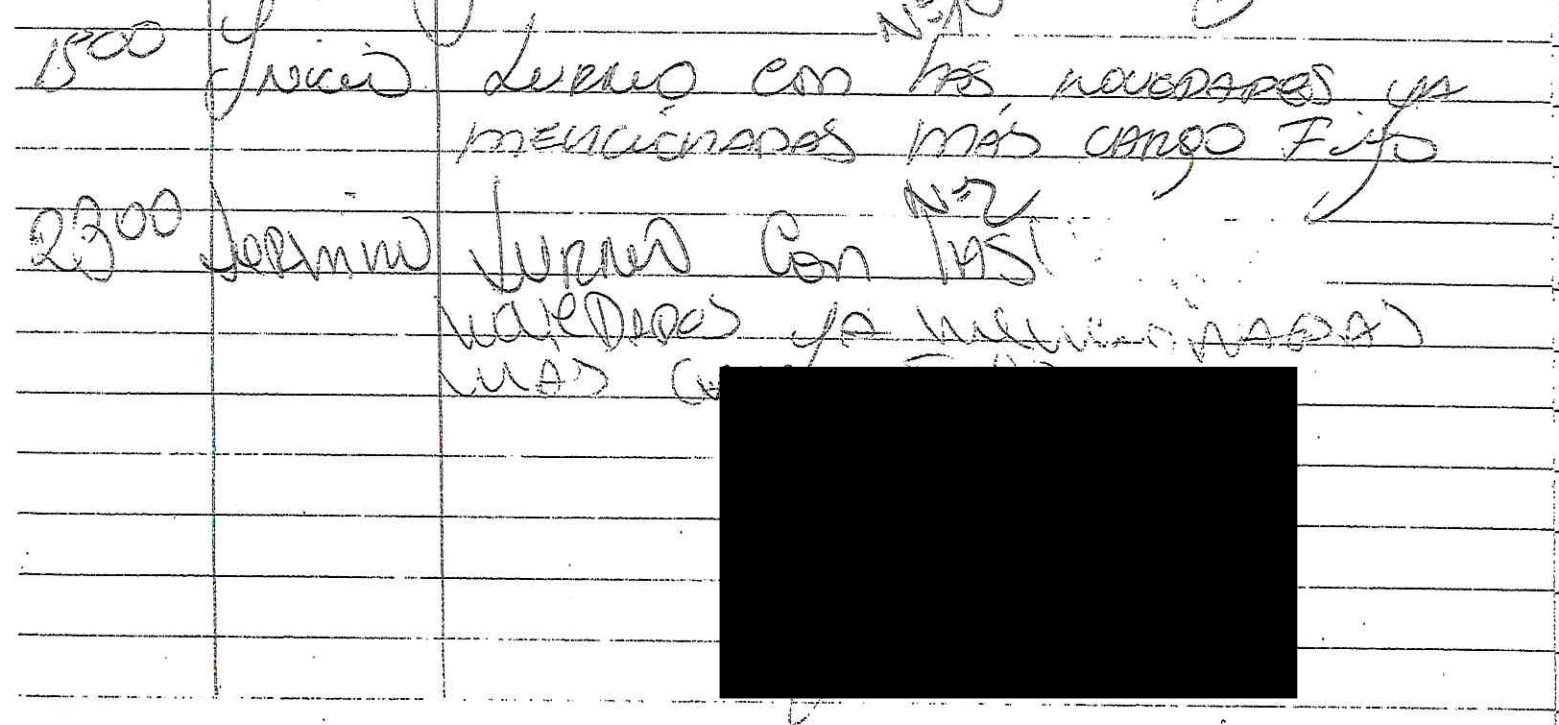 Nº1
1500 Inicio turno con las novedades ya
mencionadas más cargo Fijo
Nº2
2300 Termino turno con las
novedades ya mencionadas
mas